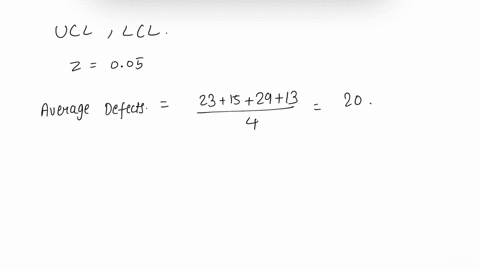 UCL , LCL.
z = 0.05
Average Defects. = 23+15+29+13 / 4 = 20.